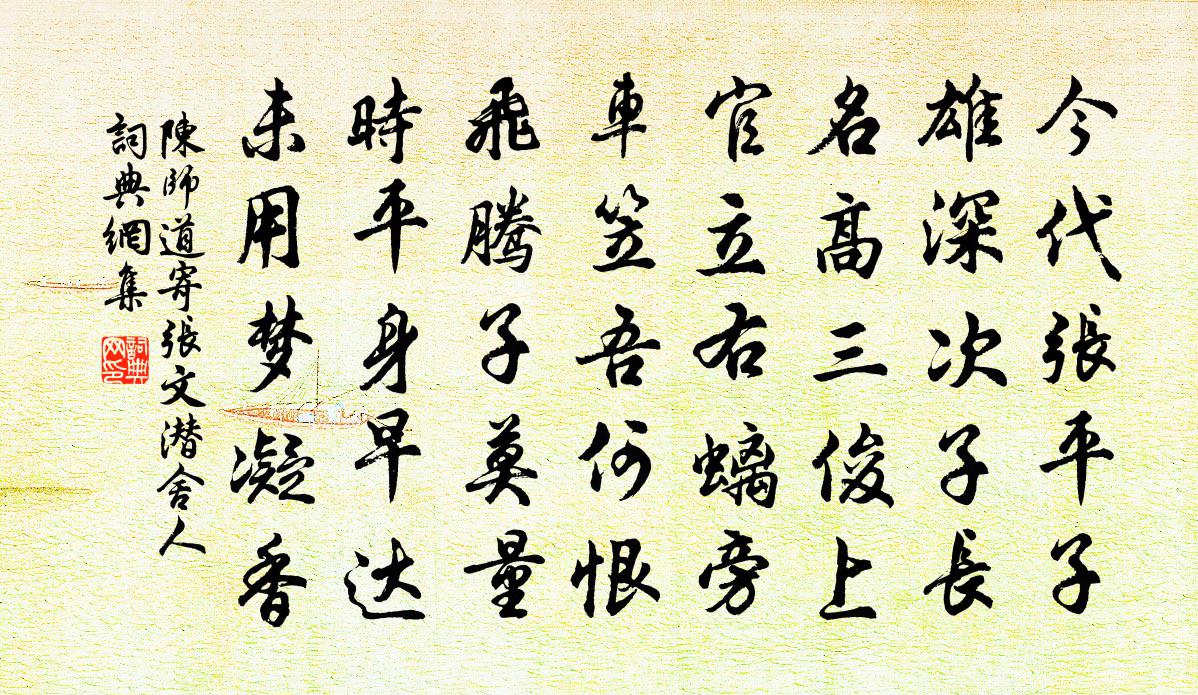 今代張平子
雄深次子長
名高三俊上
官立右螭旁
車笠吾何恨
飛騰子莫量
時平身早达
未用梦凝香
陳師道寄張文潜舍人
詞典網集
詞典
网印